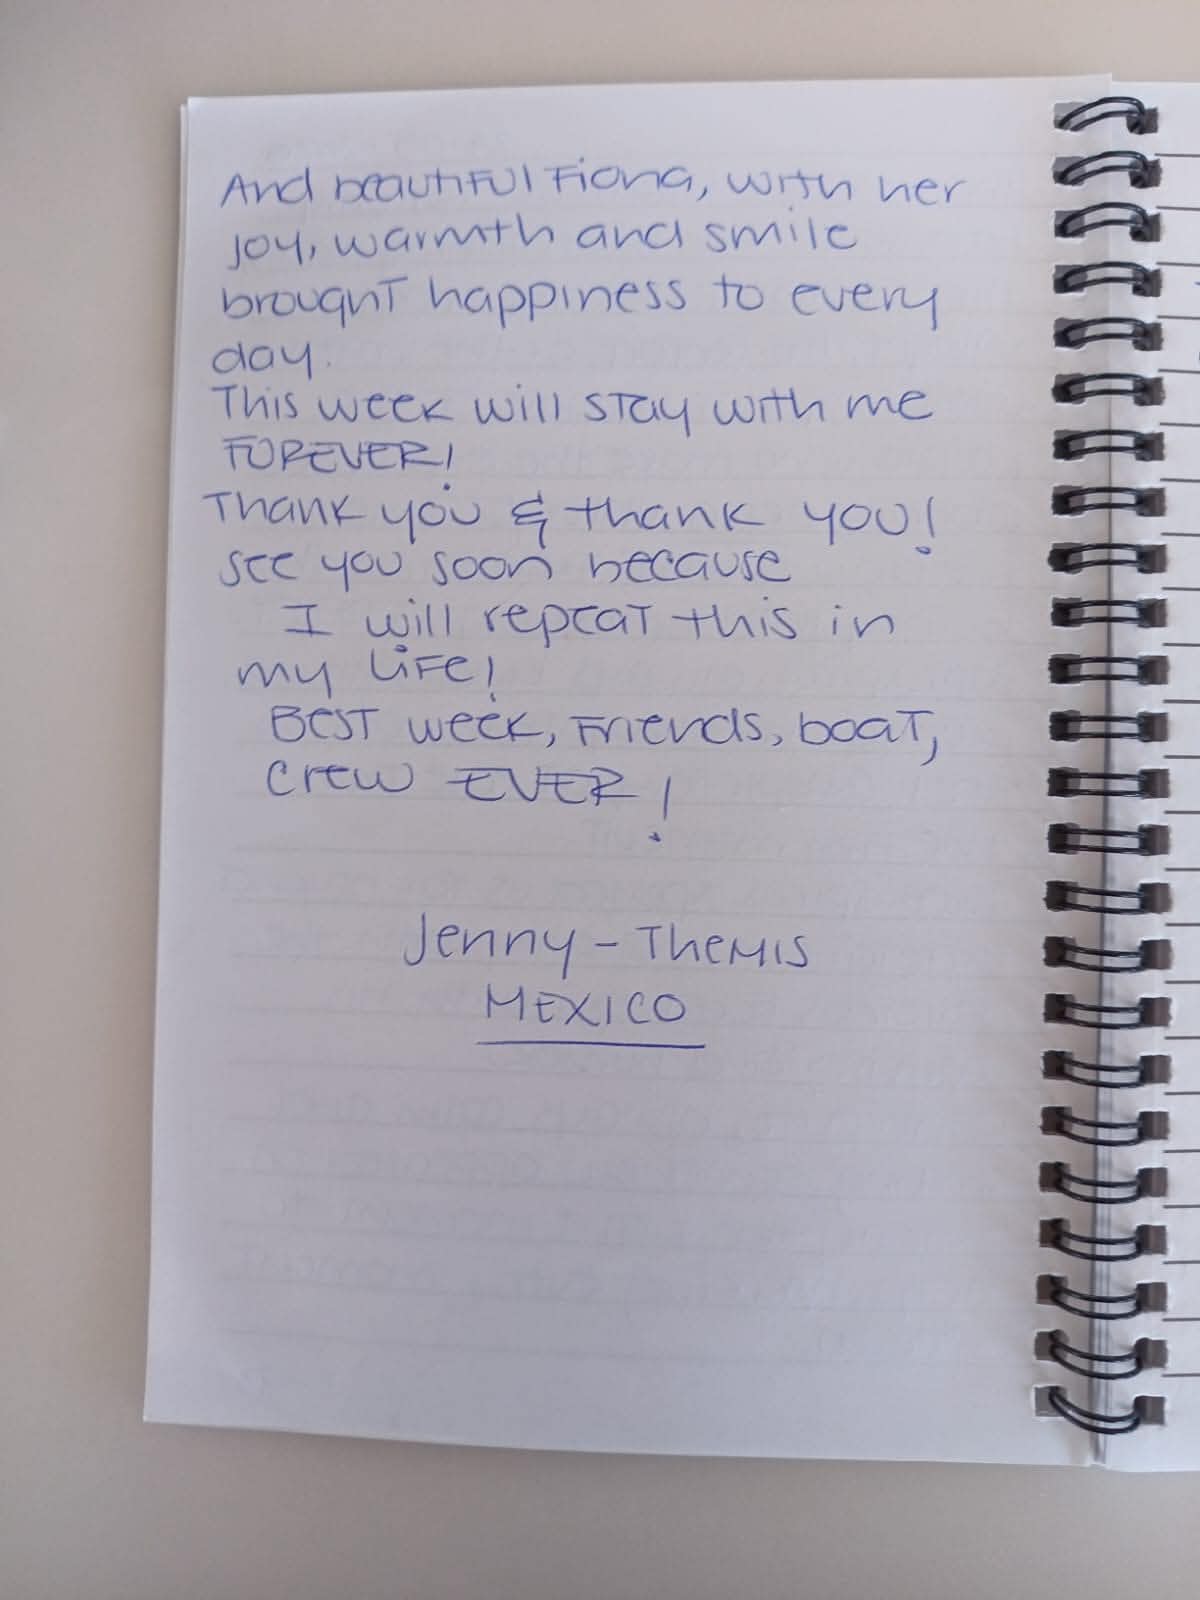 And beautiful Fiona, with her
joy, warmth and smile
brought happiness to every
day.
This week will stay with me
FOREVER!
Thank you & thank you!
see you soon because
I will repeat this in
my life!
BEST week, Friends, boat,
crew EVER!
Jenny - Themis
MEXICO